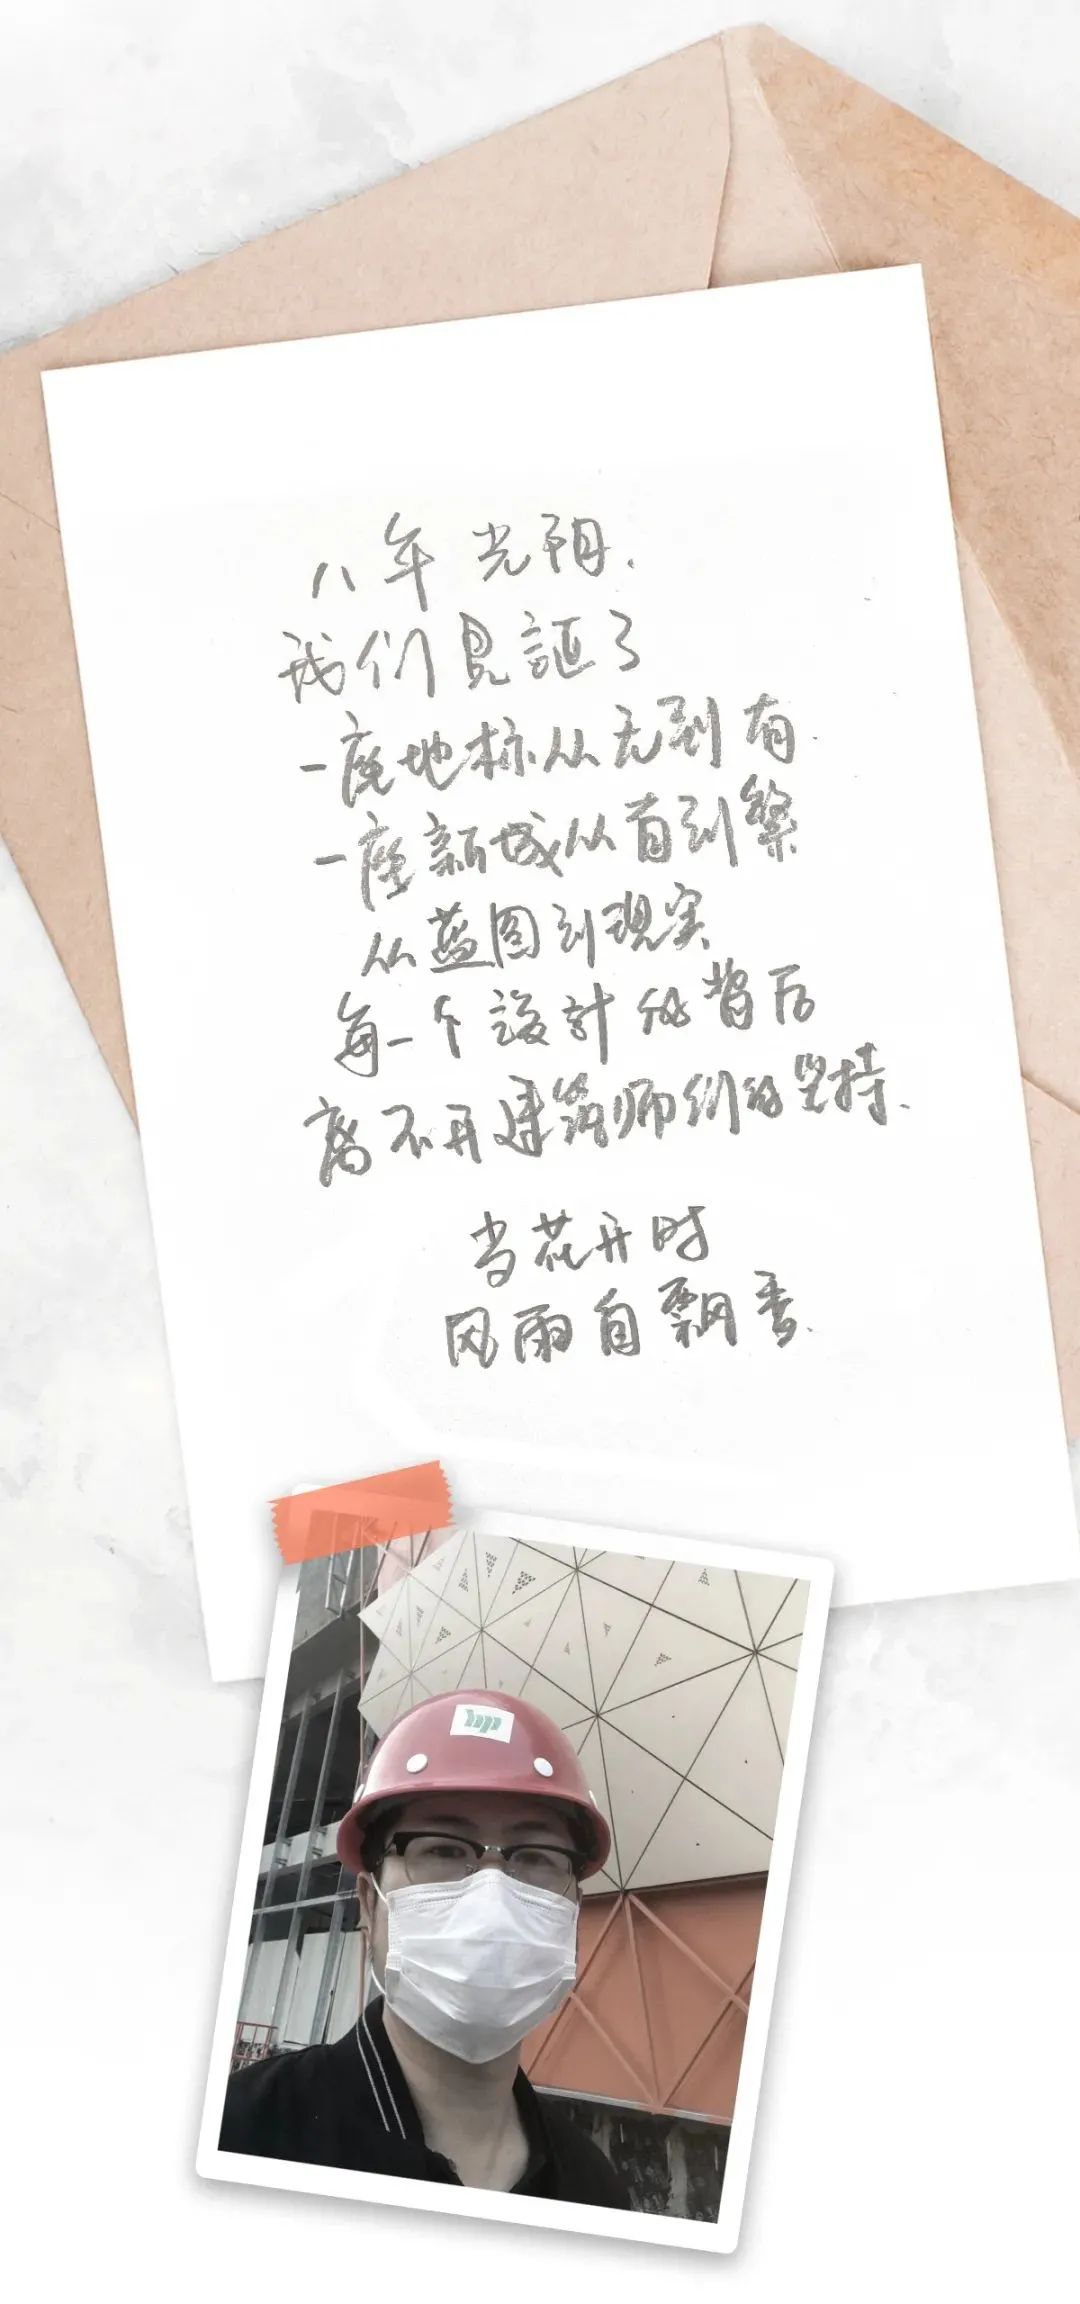 八年光阴.
我们見証了
一座地标从无到有
一座新城从到繁
从蓝图到現实
每一个設計的背后
离不开建筑师们的坚持.
当花开时
风雨自飘香.